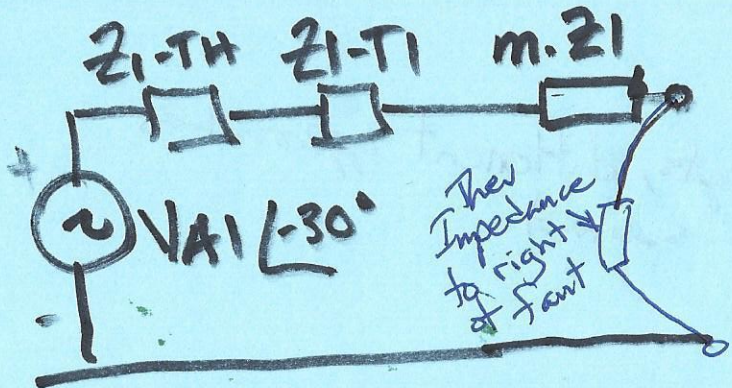 Z1-TH Z1-T1 m.Z1
+
~ VA1 ∠-30°
-
Thev
Impedance
to right
of fault